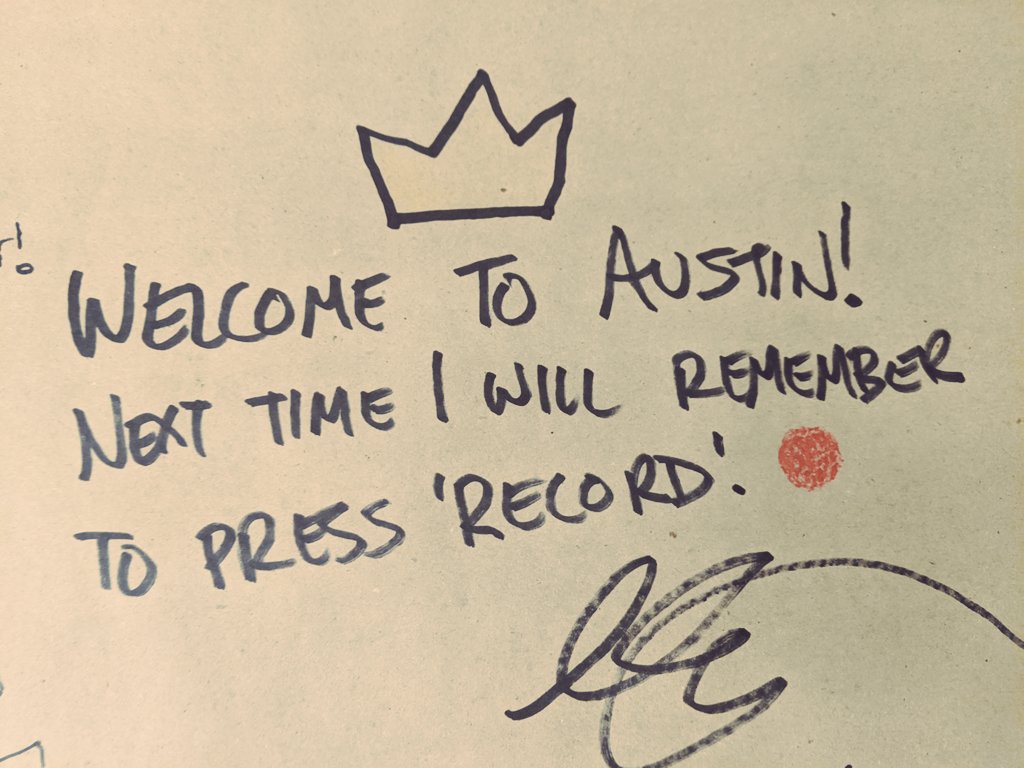 WELCOME TO AUSTIN!
NEXT TIME I WILL REMEMBER
TO PRESS 'RECORD'.